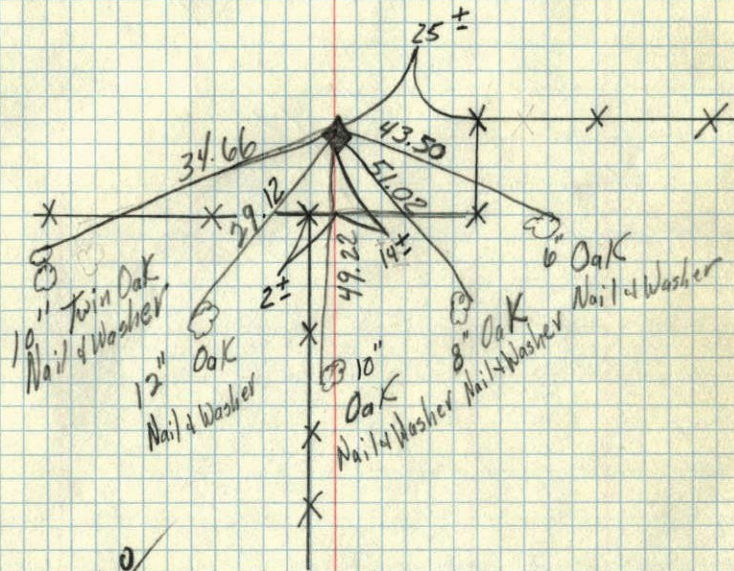 25 ±
34.66
43.50
29.12
51.02
49.22
14±
2±
10" Twin Oak
Nail & Washer
12" Oak
Nail & Washer
10"
Oak
Nail & Washer
8" Oak
Nail & Washer
6" Oak
Nail & Washer